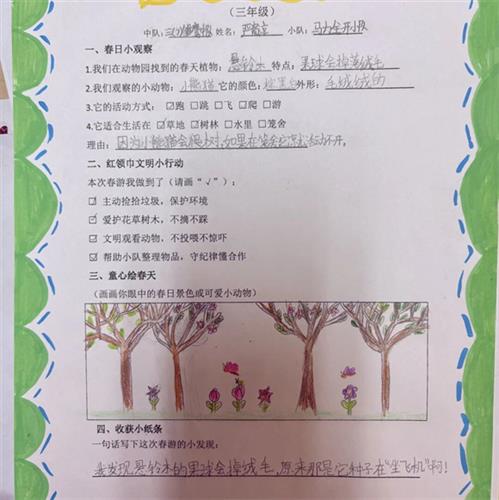 （三年级）
中队： 姓名： 小队：马力全开小队
一、春日小观察
1.我们在动物园找到的春天植物：悬铃木 特点：果球会掉落绒毛
2.我们观察的小动物：小熊猫 它的颜色：棕黑色 外形：毛绒绒的
3.它的活动方式：☑跑 ☐跳 ☐飞 ☑爬 ☐游
4.它适合生活在 ☑草地 ☑树林 ☐水里 ☐笼舍
理由：因为小熊猫会爬树，如果在笼舍它活动不开。
二、红领巾文明小行动
本次春游我做到了（请画“√”）：
☑ 主动捡拾垃圾，保护环境
☑ 爱护花草树木，不摘不踩
☑ 文明观看动物，不投喂不惊吓
☑ 帮助小队整理物品，守纪律懂合作
三、童心绘春天
（画画你眼中的春日景色或可爱小动物）
四、收获小纸条
一句话写下这次春游的小发现：
我发现悬铃木的果球会掉绒毛，原来那是它种子在“坐飞机”啊！